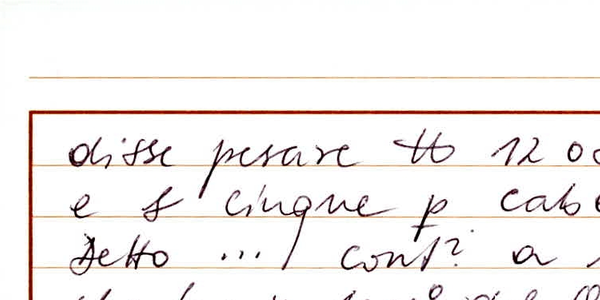 disse pesare ℔ 12 o
e f cinque p cab
Detto ... cont? a